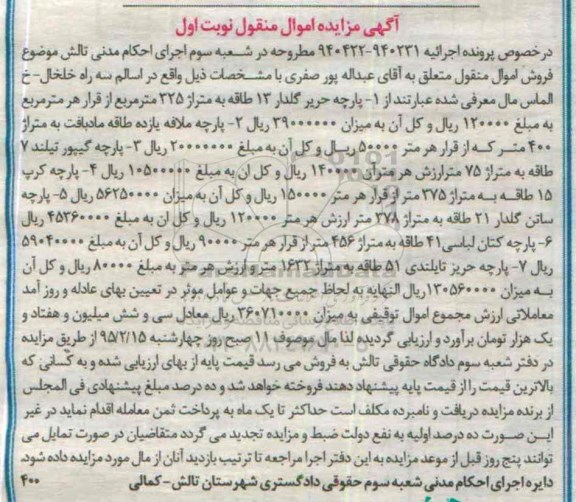 آگهی مزایده اموال منقول نوبت اول
درخصوص پرونده اجرائیه ۹۴۰۲۳۱-۹۴۰۴۲۲ مطروحه در شعبه سوم اجرای احکام مدنی تالش موضوع
فروش اموال منقول متعلق به آقای عبداله پور صفری با مشخصات ذیل واقع در اسالم سه راه خلخال-خ
الماس مال معرفی شده عبارتند از ۱- پارچه حریر گلدار ۱۳ طاقه به متراژ ۳۲۵ مترمربع از قرار هر مترمربع
به مبلغ ۱۲۰۰۰۰ ریال و کل آن به میزان ۳۹۰۰۰۰۰۰ ریال ۲- پارچه ملافه یازده طاقه مادبافت به متراژ
۴۰۰ متر که از قرار هر متر ۵۰۰۰۰ ریال و کل آن به مبلغ ۲۰۰۰۰۰۰۰ ریال ۳- پارچه گیپور تیلند ۷
طاقه به متراژ ۷۵ مترارزش هر مترآن ۱۴۰۰۰۰ ریال و کل ان به مبلغ ۱۰۵۰۰۰۰۰ ریال ۴- پارچه کرپ
۱۵ طاقه به متراژ ۳۷۵ متر از قرار هر متر ۱۵۰۰۰۰ ریال و کل آن به میزان ۵۶۲۵۰۰۰۰ ریال ۵- پارچه
ساتن گلدار ۲۱ طاقه به متراژ ۳۷۸ متر ارزش هر متر ۱۲۰۰۰۰ ریال و کل ان به مبلغ ۴۵۳۶۰۰۰۰ ریال
۶- پارچه کتان لباسی ۴۱ طاقه به متراژ ۶۵۶ متر از قرار هر متر ۹۰۰۰۰ ریال و کل آن به مبلغ ۵۹۰۴۰۰۰۰
ریال ۷- پارچه حریر تایلندی ۵۱ طاقه به متراژ ۱۶۳۲ متر و ارزش هر متر به مبلغ ۸۰۰۰۰ ریال و کل آن
به میزان ۱۳۰۵۶۰۰۰۰ ریال النهایه به لحاظ جمیع جهات و عوامل موثر در تعیین بهای عادله و روز آمد
معاملاتی ارزش مجموع اموال توقیفی به میزان ۳۶۰۷۱۰۰۰۰ ریال معادل سی و شش میلیون و هفتاد و
یک هزار تومان برآورد و ارزیابی گردیده لذا مال موصوف ۱۱ صبح روز چهارشنبه ۹۵/۲/۱۵ از طریق مزایده
در دفتر شعبه سوم دادگاه حقوقی تالش به فروش می رسد قیمت پایه از بهای ارزیابی شده و به کسانی که
بالاترین قیمت را از قیمت پایه پیشنهاد دهند فروخته خواهد شد و ده درصد مبلغ پیشنهادی فی المجلس
از برنده مزایده دریافت و نامبرده مکلف است حداکثر تا یک ماه به پرداخت ثمن معامله اقدام نماید در غیر
این صورت ده درصد اولیه به نفع دولت ضبط و مزایده تجدید می گردد متقاضیان در صورت تمایل می
توانند پنج روز قبل از موعد مزایده به این دفتر اجرا مراجعه تا ترتیب بازدید آنان از مال مورد مزایده داده شود.
دایره اجرای احکام مدنی شعبه سوم حقوقی دادگستری شهرستان تالش-کمالی ۴۰۰